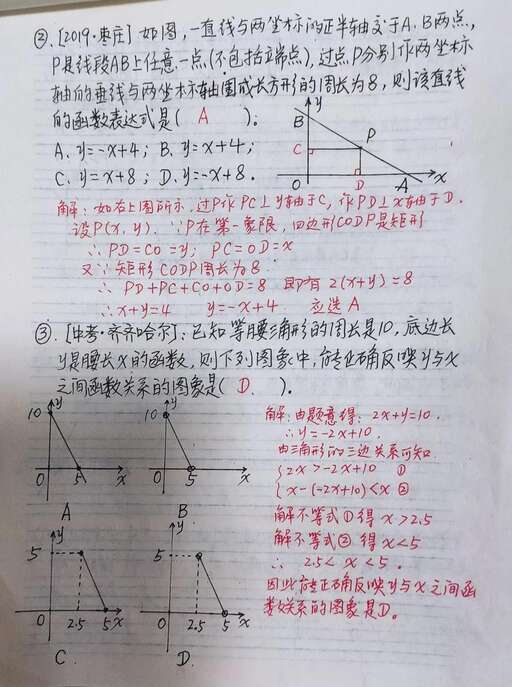 ②.[2019·枣庄]如图,一直线与两坐标轴的正半轴交于A、B两点,
P是线段AB上任意一点(不包括端点),过点P分别作两坐标
轴的垂线与两坐标轴围成长方形的周长为8,则该直线
的函数表达式是( A )。
A、y=-x+4; B、y=x+4;
C、y=x+8; D、y=-x+8.
y
B
C
P
O
D
A
x
解:如右上图所示,过P作PC⊥y轴于C,作PD⊥x轴于D.
设P(x,y). ∵P在第一象限,四边形CODP是矩形
∴PD=CO=y; PC=OD=x
又∵矩形CODP周长为8
∴PD+PC+CO+OD=8 即有2(x+y)=8
∴x+y=4 y=-x+4 应选A
③.[中考·齐齐哈尔]:已知等腰三角形的周长是10,底边长
y是腰长x的函数,则下列图象中,能正确反映y与x
之间函数关系的图象是( D. )。
y
10
O
5
x
A
y
10
O
5
x
B
y
5
O
2.5
5
x
C.
y
5
O
2.5
5
x
D.
解:由题意得:2x+y=10.
∴y=-2x+10.
由三角形的三边关系可知
2x>-2x+10 ①
x-(-2x+10)<x ②
解不等式①得x>2.5
解不等式②得x<5
∴2.5<x<5.
因此能正确反映y与x之间函
数关系的图象是D。